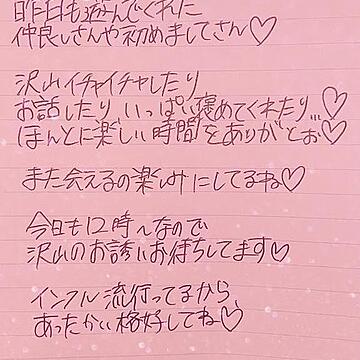 昨日も遊んでくれた
仲良しさんや初めましてさん♡
沢山イチャイチャしたり
お話したりいっぱい褒めてくれたり…♡
ほんとに楽しい時間をありがとぉ♡
また会えるの楽しみにしてるね♡
今日も12時〜なので
沢山のお誘いお待ちしてます♡
インフル流行ってるから、
あったかい格好してね♡